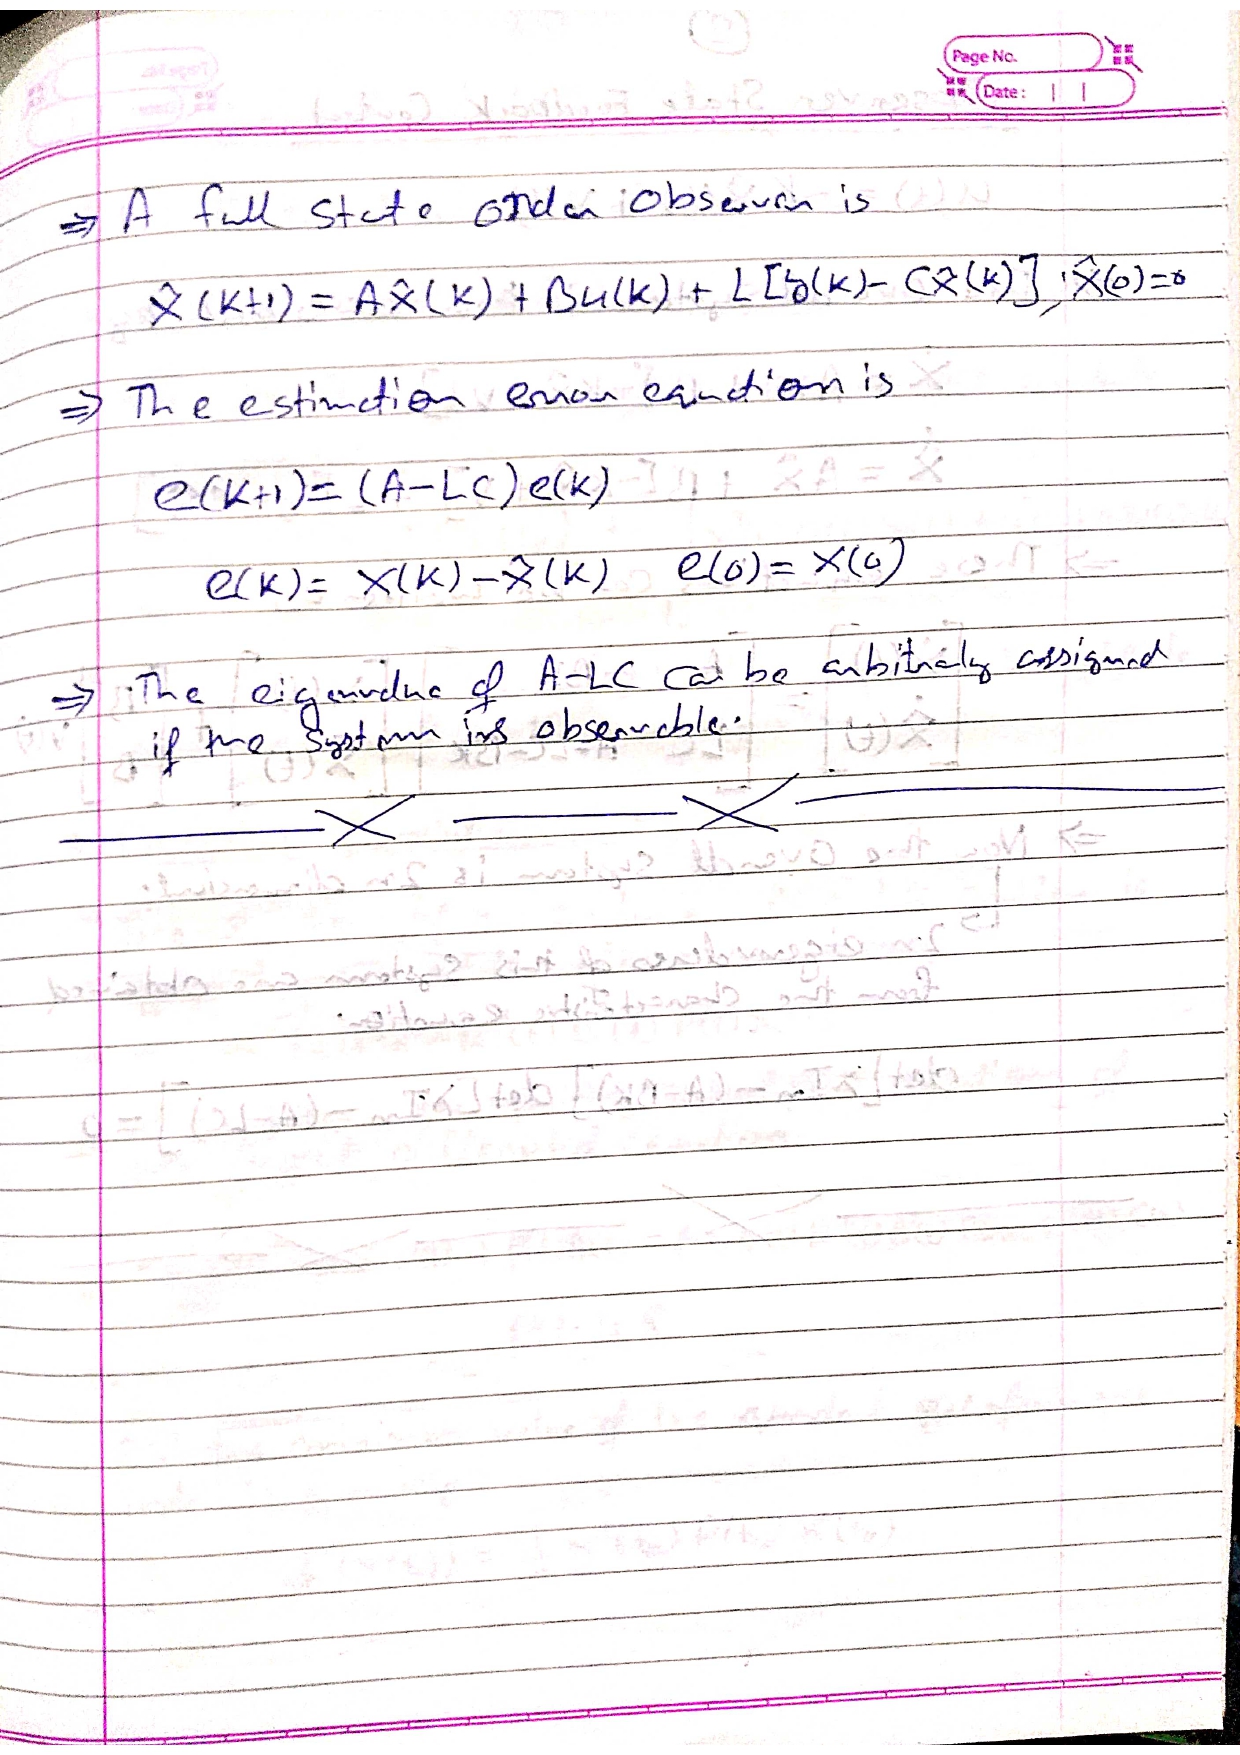 Page No.
Date:
⇒ A full state order observer is
x̂(k+1) = Ax̂(k) + Bu(k) + L[y(k) - Cx̂(k)] ; x̂(0)=0
⇒ The estimation error equation is
e(k+1) = (A-LC)e(k)
e(k) = x(k) - x̂(k) e(0) = x(0)
⇒ The eigenvalue of A-LC can be arbitraly assigned
if the system is observable.